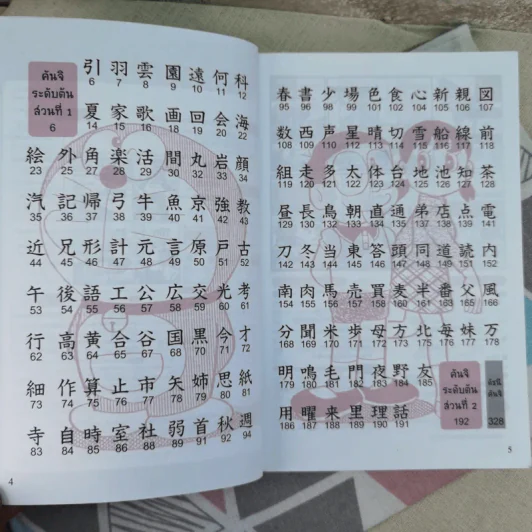 คันจิ
ระดับต้น
ส่วนที่ 1
6
引 羽 雲 園 遠 何 科
6 7 8 9 10 11 12
夏 家 歌 画 回 会 海
14 15 16 18 19 20 22
絵 外 角 楽 活 間 丸 岩 顔
23 25 26 27 28 30 31 32 34
汽 記 帰 弓 牛 魚 京 強 教
35 36 37 38 39 40 41 42 43
近 兄 形 計 元 言 原 戸 古
44 45 46 47 48 49 50 51 52
午 後 語 工 公 広 交 光 考
53 54 55 56 57 58 59 60 61
行 高 黄 合 谷 国 黒 今 才
62 63 64 66 68 69 70 71 72
細 作 算 止 市 矢 姉 思 紙
73 74 75 76 77 78 79 80 81
寺 自 時 室 社 弱 首 秋 週
83 84 85 86 88 89 91 92 94
4
春 書 少 場 色 食 心 新 親 図
95 96 98 99 101 102 104 105 106 107
数 西 声 星 晴 切 雪 船 線 前
108 109 110 111 112 113 114 115 116 118
組 走 多 太 体 台 地 池 知 茶
119 120 121 122 123 124 125 126 127 128
昼 長 鳥 朝 直 通 弟 店 点 電
129 130 131 133 134 135 138 139 140 141
刀 冬 当 東 答 頭 同 道 読 内
142 143 144 145 146 147 148 149 151 152
南 肉 馬 売 買 麦 半 番 父 風
154 155 156 157 158 159 160 161 162 163
分 聞 米 歩 母 方 北 毎 妹 万
168 169 170 171 172 173 175 176 177 178
明 鳴 毛 門 夜 野 友
179 180 181 182 183 184 185
คันจิ
ระดับต้น
ส่วนที่ 2
192
คันจิ
328
用 曜 来 里 理 話
186 187 188 189 190 191
5